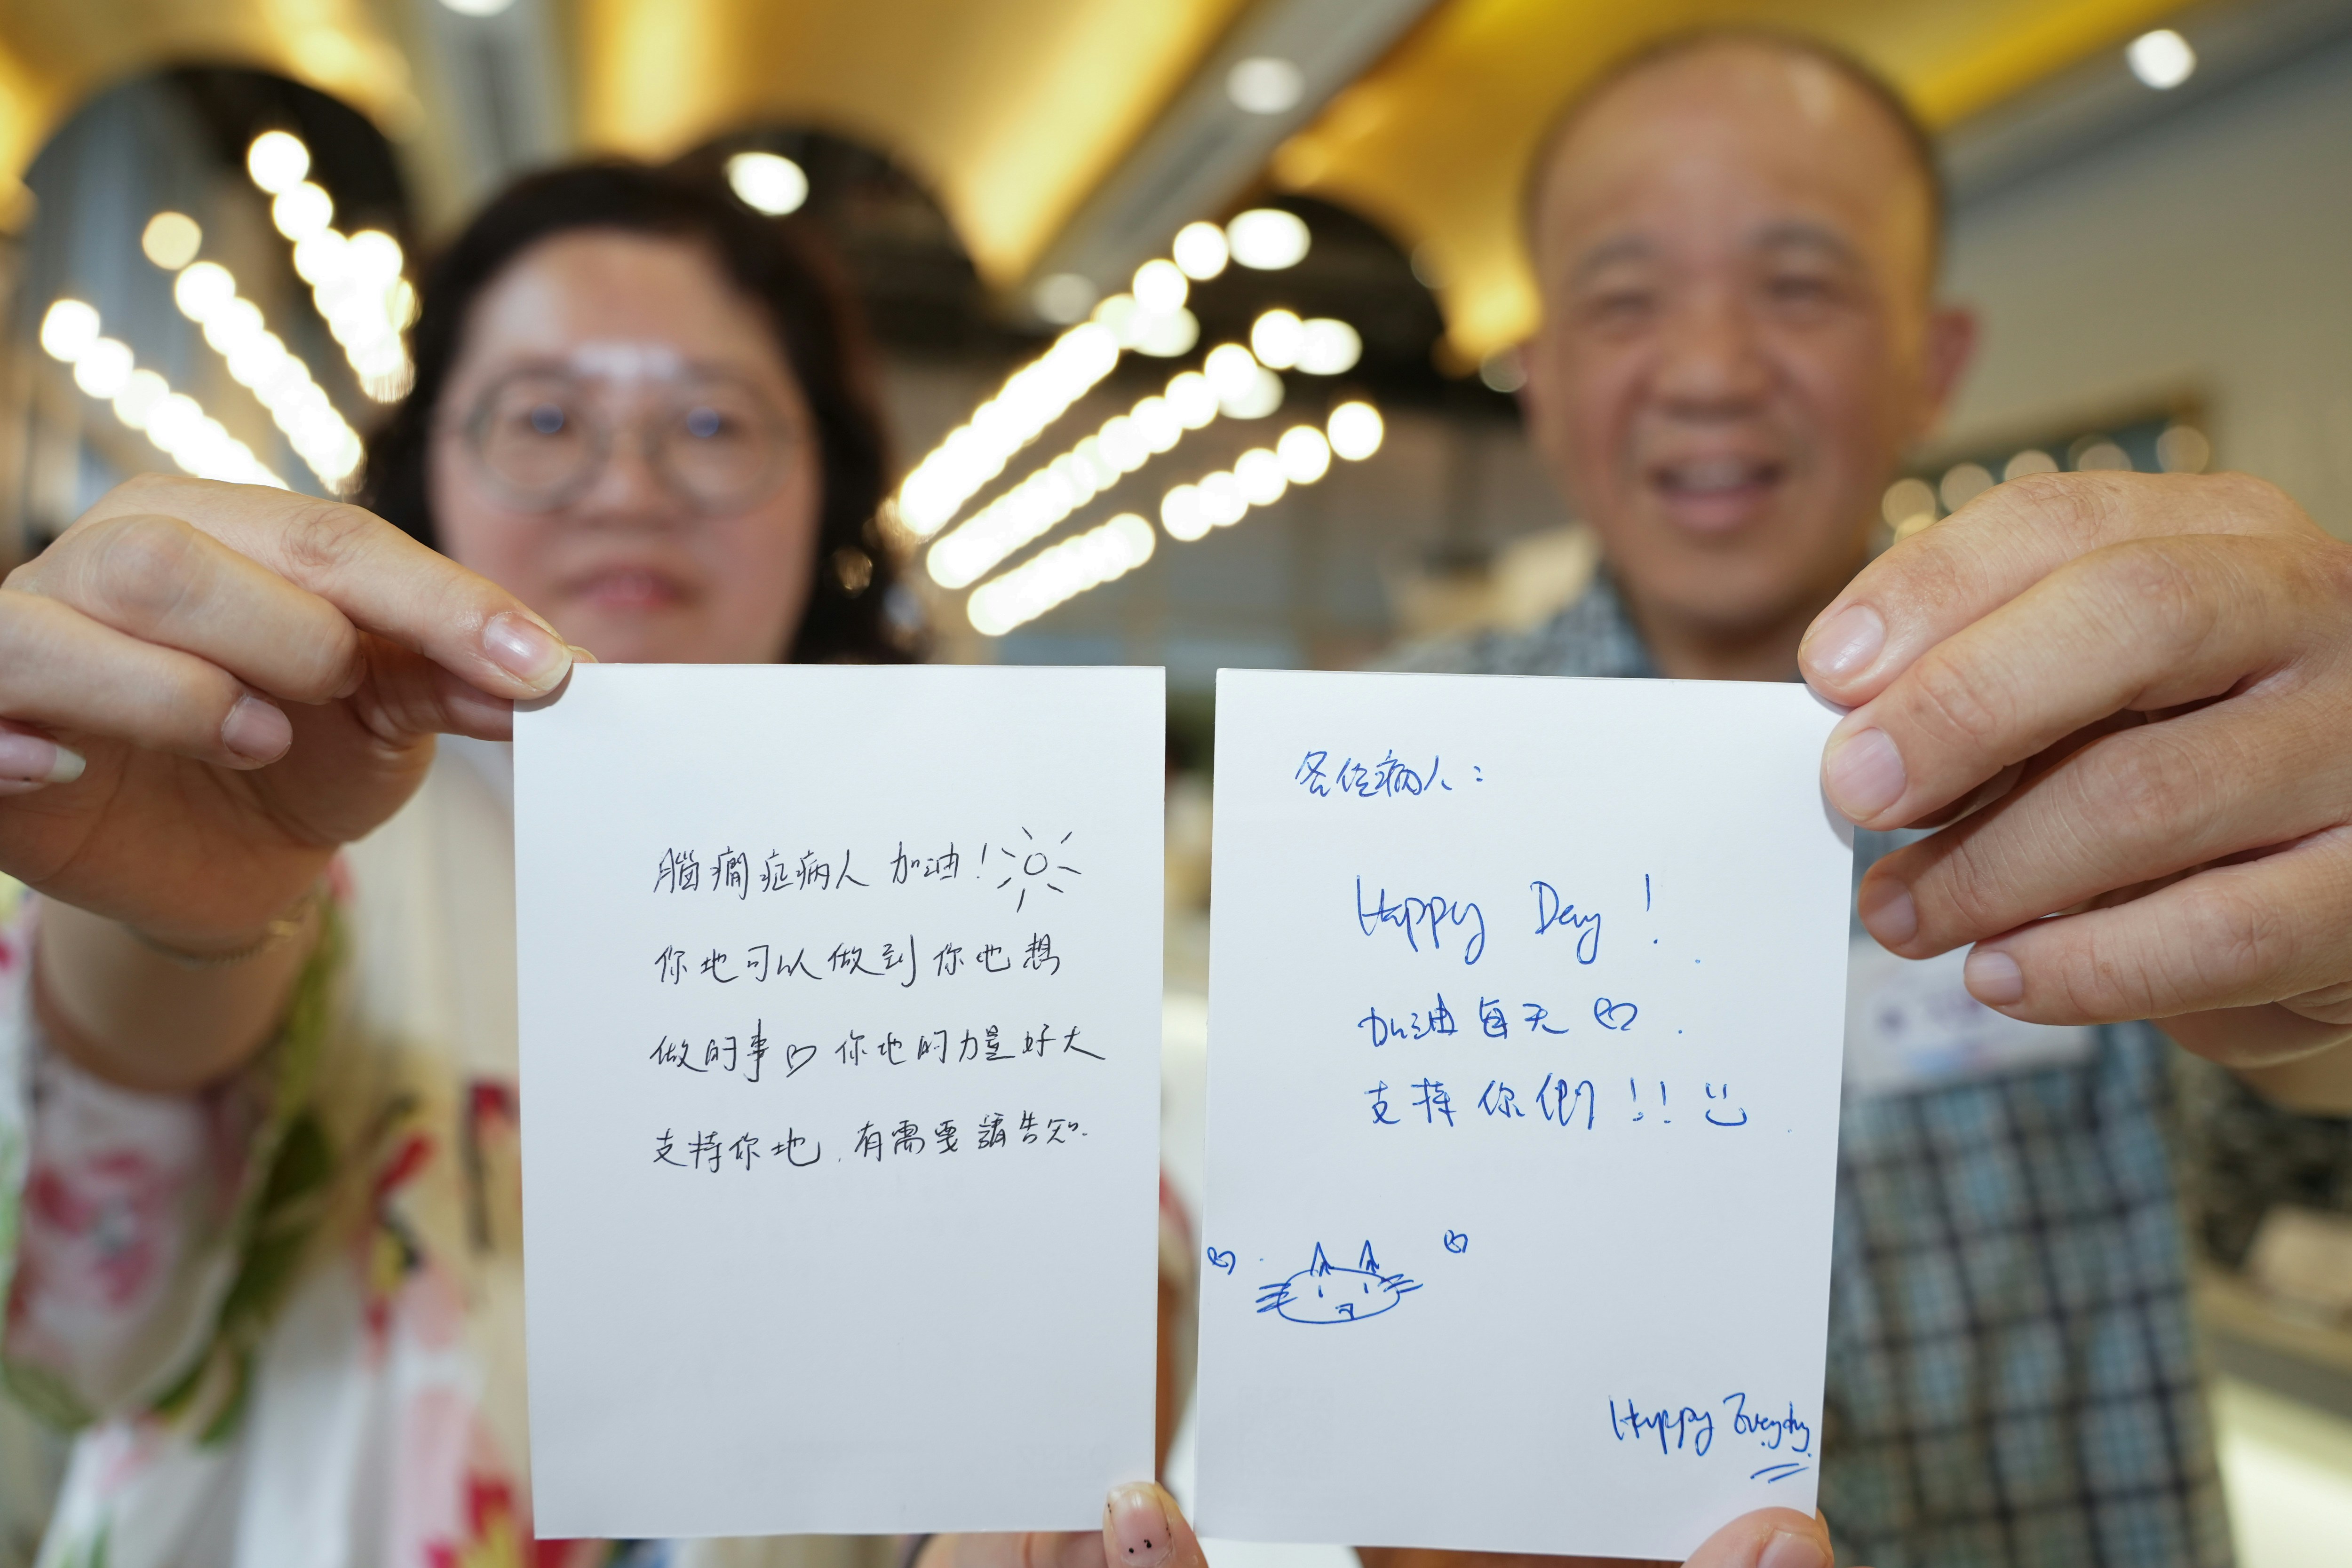 腦癇症病人 加油！
你地可以做到你地想
做的事♡你地的力量好大
支持你地，有需要請告知.
各位病人：
Happy Day！
加油每天♡.
支持你們！！
Happy Everyday